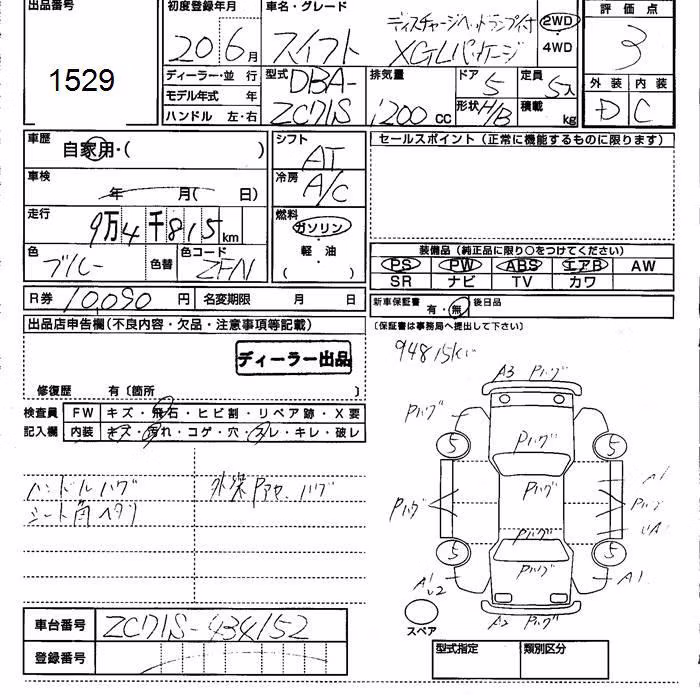 出品番号
1529
初度登録年月
20 6月
車名・グレード
スイフト
ディスチャージヘッドランプ付
XGLパッケージ
2WD
4WD
評価点
3
外装 内装
D C
ディーラー・並行
モデル年式 年
ハンドル 左・右
型式
DBA-
ZC71S
排気量
1200 cc
ドア 5
形状 H/B
定員 5人
積載 kg
車歴
自家用・( )
車検
年 月( 日)
走行
9万4千815km
色
ブルー
色替
色コード
ZFN
シフト
AT
冷房
A/C
燃料
ガソリン
軽・油
( )
セールスポイント(正常に機能するものに限ります)
装備品(純正品に限り○をつけてください)
PS PW ABS エアB AW
SR ナビ TV カワ
R券 10,090円 名変期限 月 日
新車保証書 有・無 後日品
(保証書は事務局へ提出して下さい)
出品店申告欄(不良内容・欠品・注意事項等記載)
ディーラー出品
修復歴 有〔箇所 〕
検査員
記入欄
FW キズ・飛石・ヒビ割・リペア跡・X要
内装 キズ・汚れ・コゲ・穴・スレ・キレ・破レ
ハンドルハゲ
シート角ヘタリ
外装Pアセ・ハゲ
94815km
A3 Pハゲ
Pハゲ
Pハゲ
5 5
Pハゲ
Pハゲ
A1
Pハゲ
Pハゲ
5 5
Pハゲ
A1
A1
A2 Pハゲ
スペア
車台番号 ZC71S-434152
登録番号
型式指定 類別区分